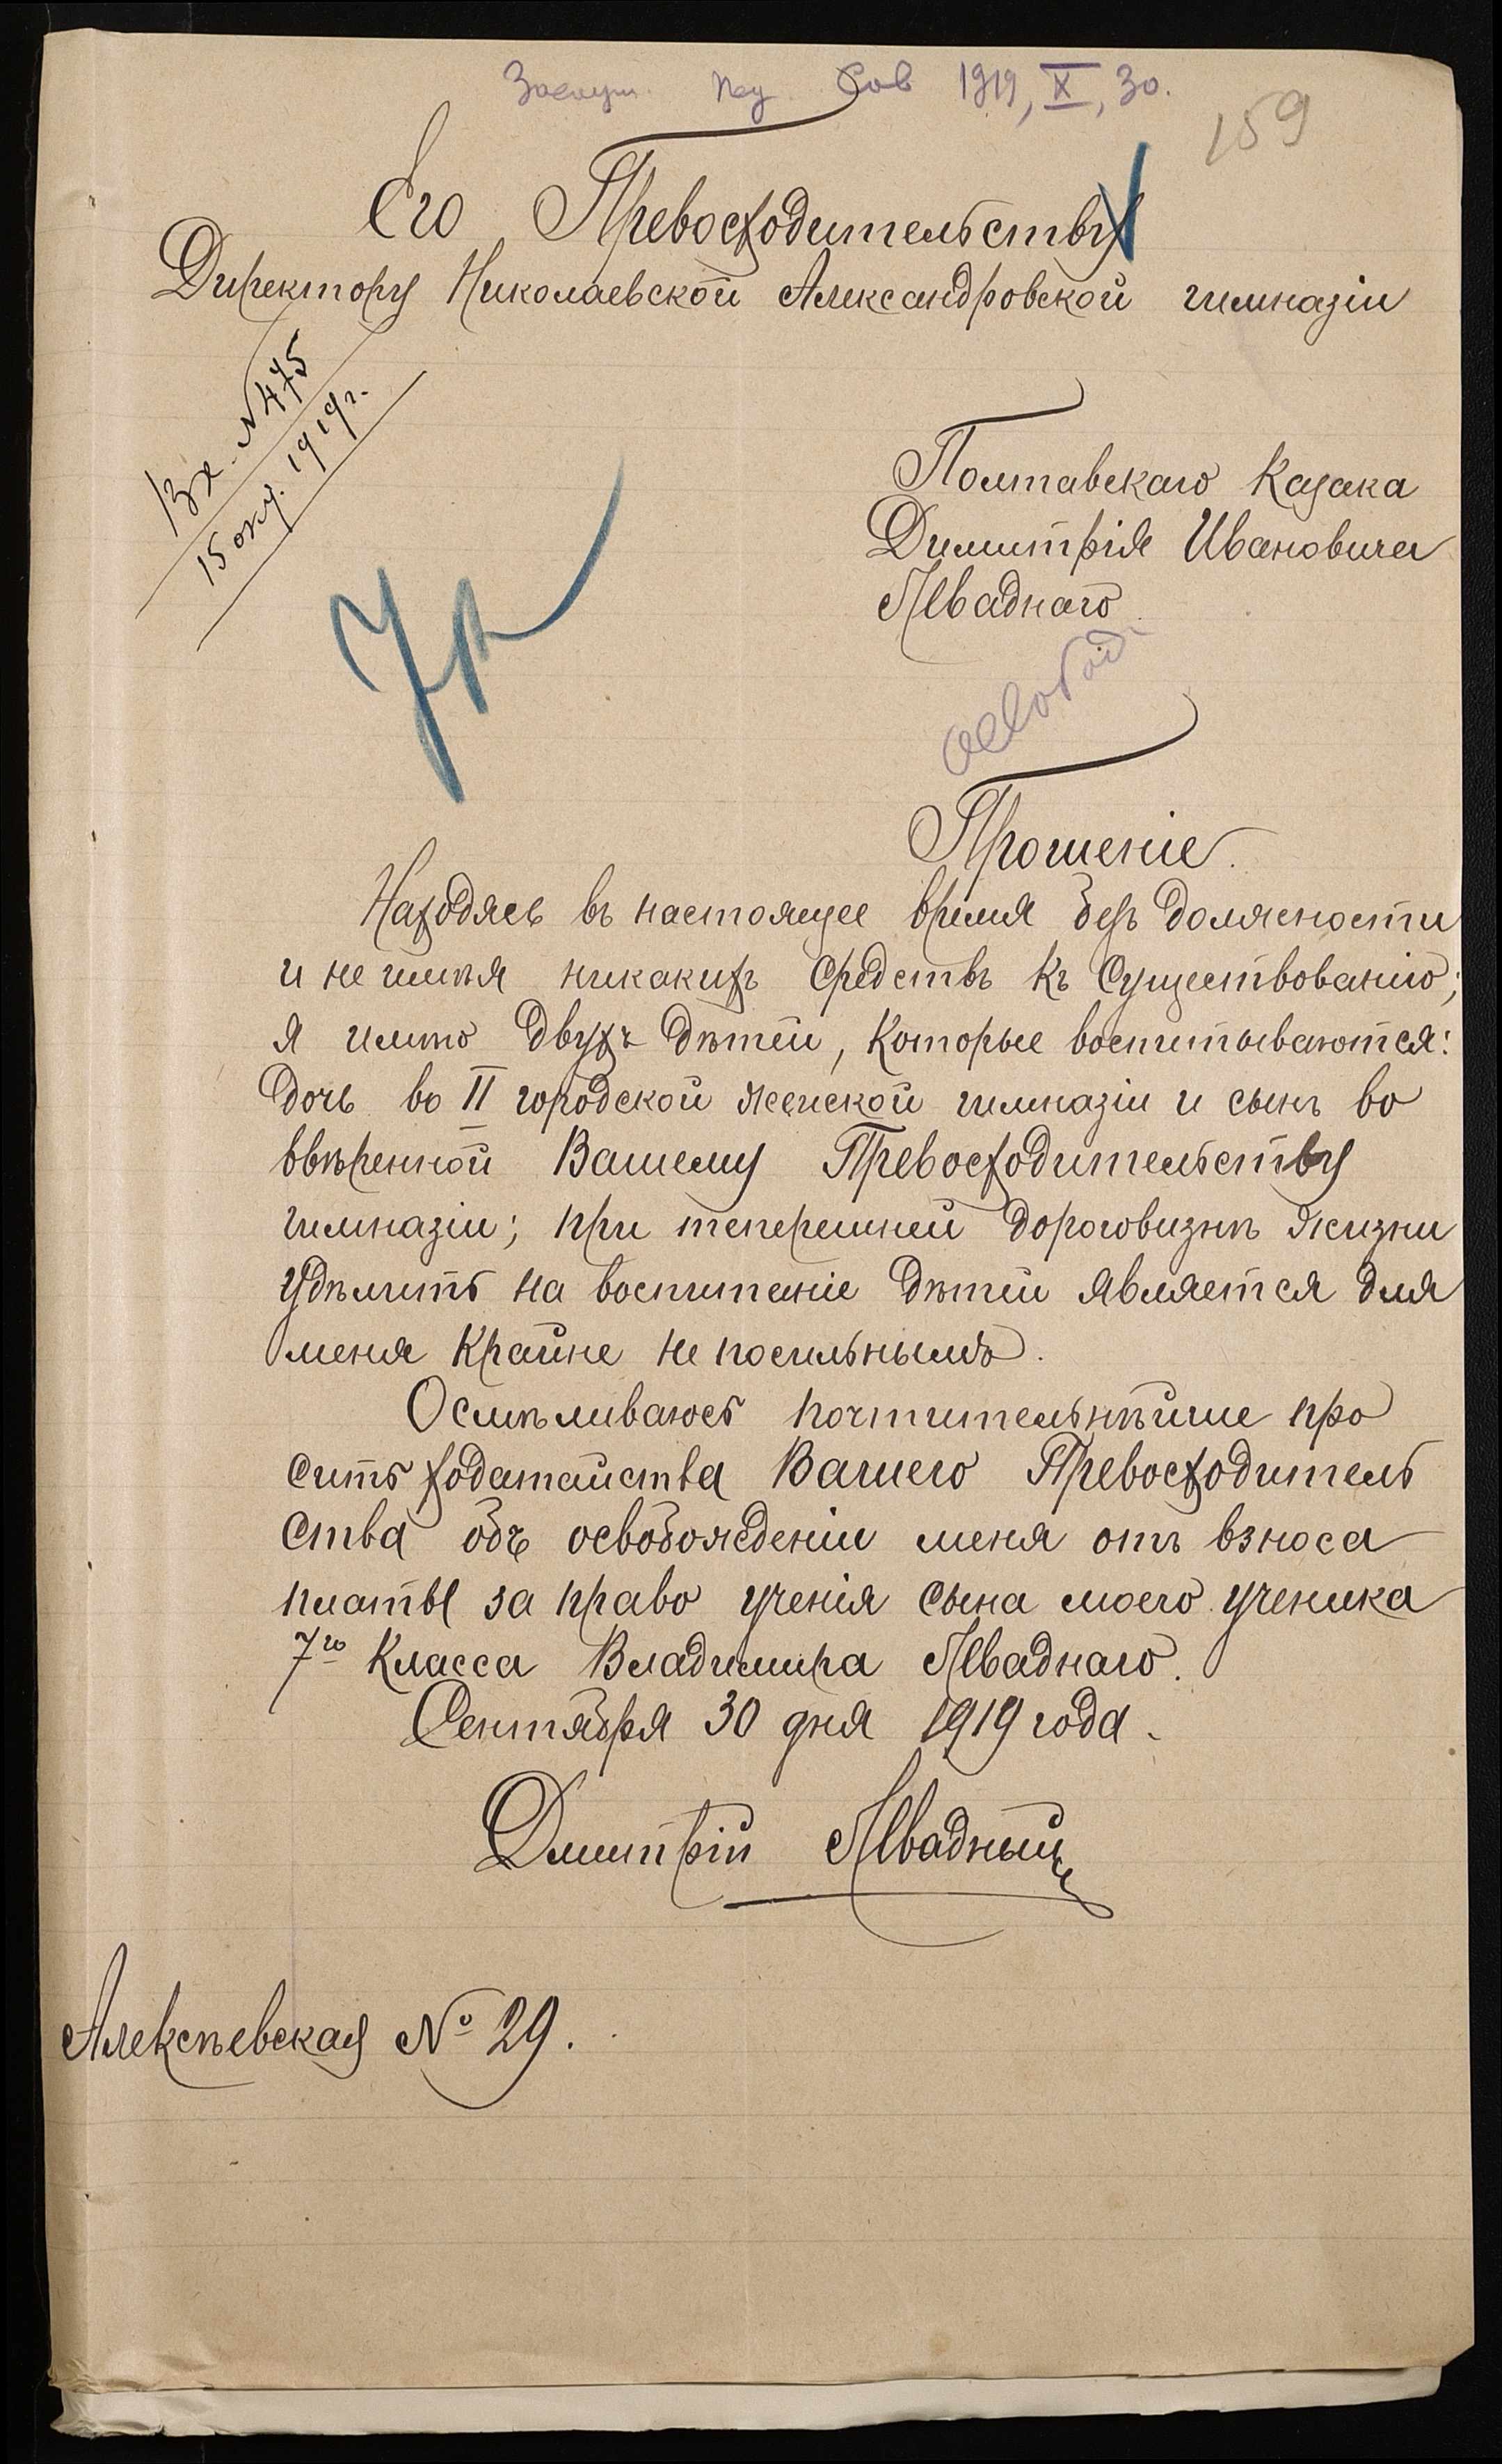 Заслуш. Пед. Сов 1919, X, 30.
159
Его Превосходительству
Директору Николаевской Александровской гимназіи
Вх. N 475
15 окт. 1919 г.
Полтавскаго Казака
Димитрія Ивановича
Лваднаго
освобод.
Прошеніе.
Находясь въ настоящее время безъ должности
и не имѣя никакихъ средствъ къ существованію;
я имѣю двухъ дѣтей, которые воспитываются:
дочь во II городской женской гимназіи и сынъ во
ввѣренной Вашему Превосходительству
гимназіи; при теперешней дороговизнѣ жизни
удѣлить на воспитаніе дѣтей является для
меня крайне не посильнымъ.
Осмѣливаюсь почтительнѣйше про
сить ходатайства Вашего Превосходитель
ства объ освобожденіи меня отъ взноса
платы за право ученія сына моего ученика
7го класса Владимира Лваднаго.
Сентября 30 дня 1919 года.
Дмитрій Лвадный
Алексѣевская № 29.